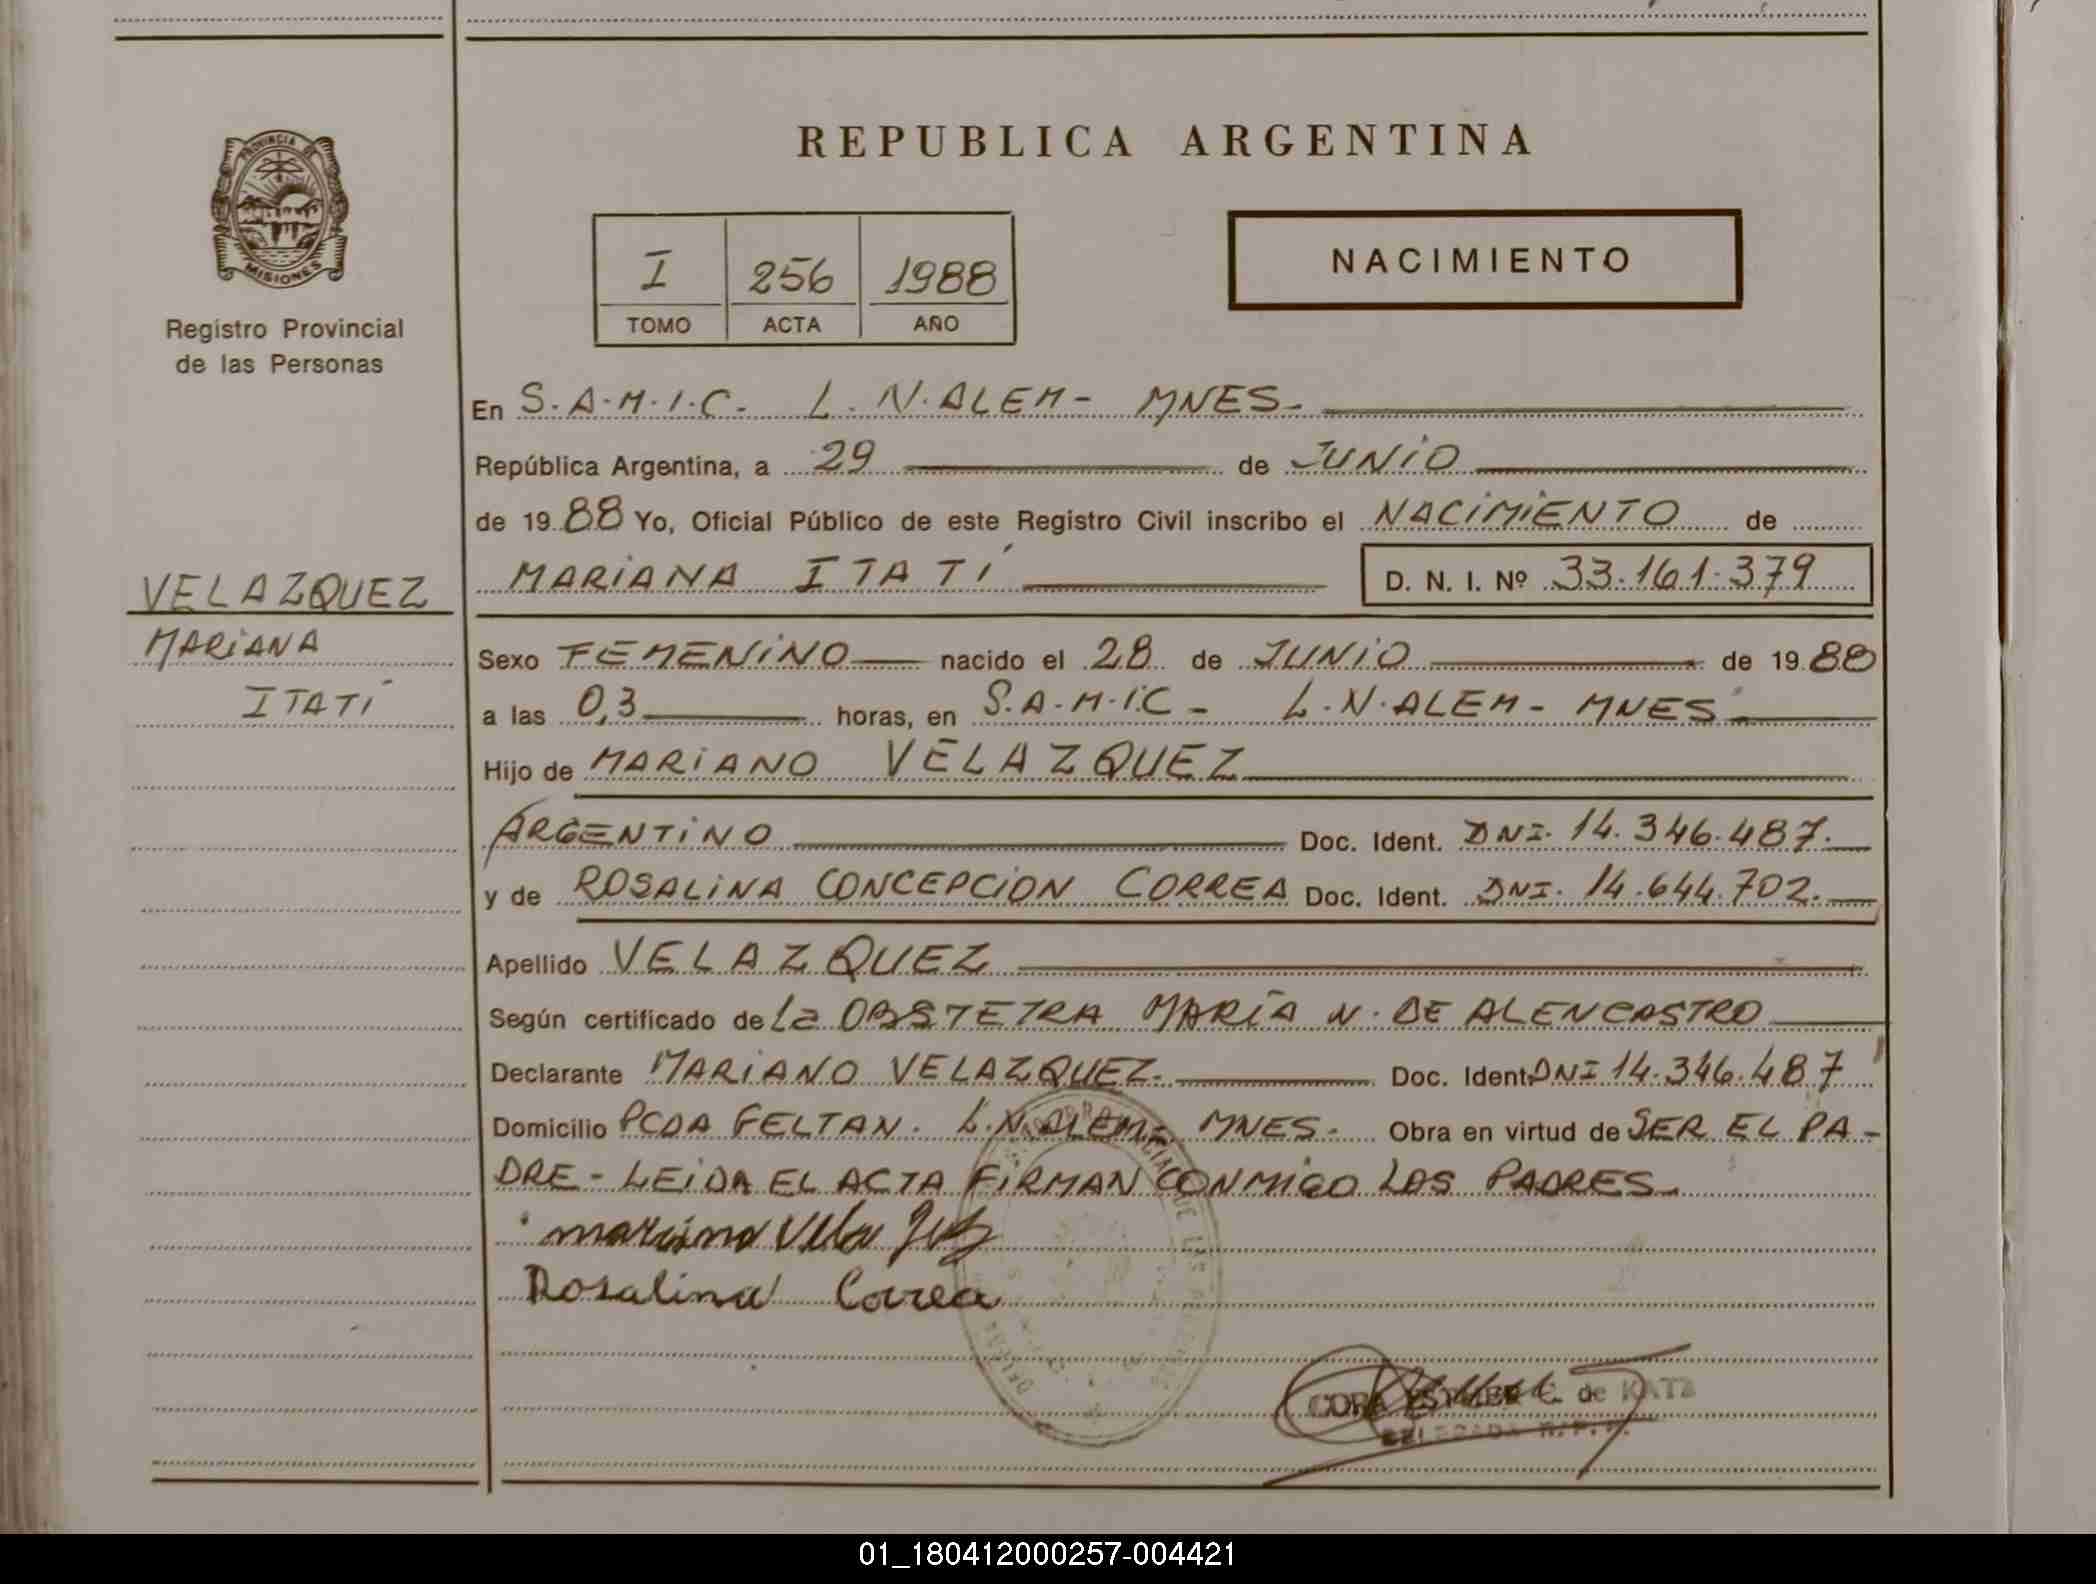 REPUBLICA ARGENTINA
PROVINCIA DE
MISIONES
Registro Provincial
de las Personas
I 256 1988
TOMO ACTA AÑO
NACIMIENTO
En S.A.M.I.C. L.N.ALEM- MNES-
República Argentina, a 29 de JUNIO
de 1988 Yo, Oficial Público de este Registro Civil inscribo el NACIMIENTO de
MARIANA ITATÍ D. N. I. Nº 33.161.379
VELAZQUEZ
MARIANA
ITATÍ
Sexo FEMENINO nacido el 28 de JUNIO de 1988
a las 0,3 horas, en S.A.M.I.C - L.N.ALEM - MNES -
Hijo de MARIANO VELAZQUEZ
ARGENTINO Doc. Ident. DNI. 14.346.487.
y de ROSALINA CONCEPCION CORREA Doc. Ident. DNI. 14.644.702.
Apellido VELAZQUEZ
Según certificado de La OBSTETRA MARÍA N. DE ALENCASTRO
Declarante MARIANO VELAZQUEZ. Doc. Ident. DNI 14.346.487
Domicilio PCDA FELTAN. L.N.ALEM- MNES- Obra en virtud de SER EL PA-
DRE - LEIDA EL ACTA FIRMAN CONMIGO LOS PADRES.
Rosalina Correa
CORA ESTHER C. de KATZ
DELEGADA R.P.P.
01_180412000257-004421